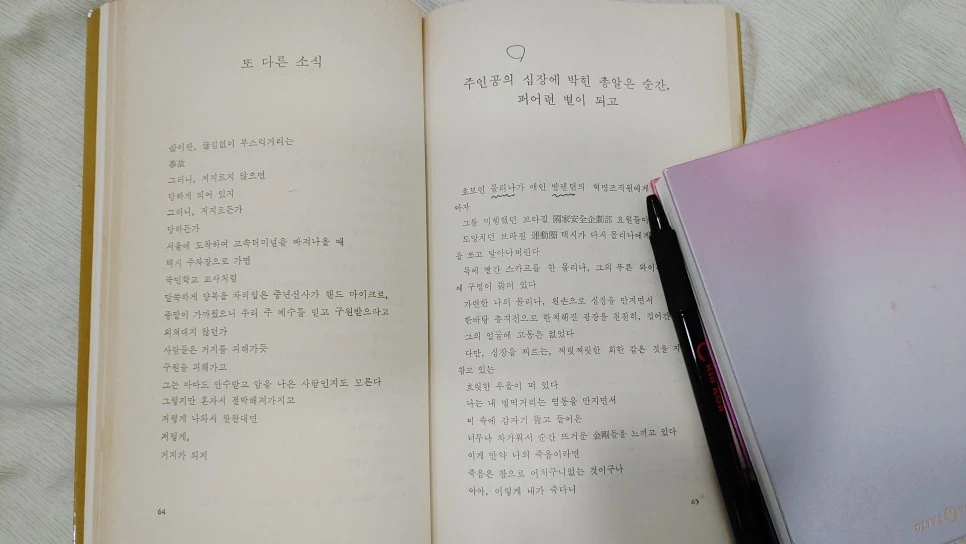 또 다른 소식
삶이란, 끊임없이 부스럭거리는
事故
그러니, 저지르지 않으면
당하게 되어 있지
그러니, 저지르든가
당하든가
서울에 도착하여 고속터미널을 빠져나올 때
택시 주차장으로 가면
국민학교 교사처럼
말쑥하게 양복을 차려입은 중년신사가 핸드 마이크로,
종말이 가까웠으니 우리 주 예수를 믿고 구원받으라고
외쳐대지 않던가
사람들은 거지를 피해가듯
구원을 피해가고
그는 아마도 안수받고 암을 나은 사람인지도 모른다
그렇지만 혼자서 절박해져가지고
저렇게 나와서 왈왈대면
저렇게,
거지가 되지
64
주인공의 심장에 박힌 총알은 순간,
퍼어런 별이 되고
호모인 몰리나가 애인 발렌틴의 혁명조직원에게
하자
그를 미행했던 브라질 國家安全企劃部 요원들이
도망치던 브라질 運動圈 택시가 다시 몰리나에게
을 쏘고 달아나버린다
목에 빨간 스카프를 한 몰리나, 그의 푸른 와이
에 구멍이 뚫려 있다
가련한 나의 몰리나, 왼손으로 심장을 만지면서
한바탕 총격전으로 한적해진 광장을 천천히, 걸어간
그의 얼굴에 고통은 없었다
다만, 심장을 찌르는, 찌릿찌릿한 회한 같은 것을 지
참고 있는
흐릿한 우울이 떠 있다
나는 내 벌떡거리는 염통을 만지면서
이 속에 갑자기 뚫고 들어온
너무나 차가워서 순간 뜨거운 金剛들을 느끼고 있다
이게 만약 나의 죽음이라면
죽음은 참으로 어처구니없는 것이구나
아아, 이렇게 내가 죽다니
65